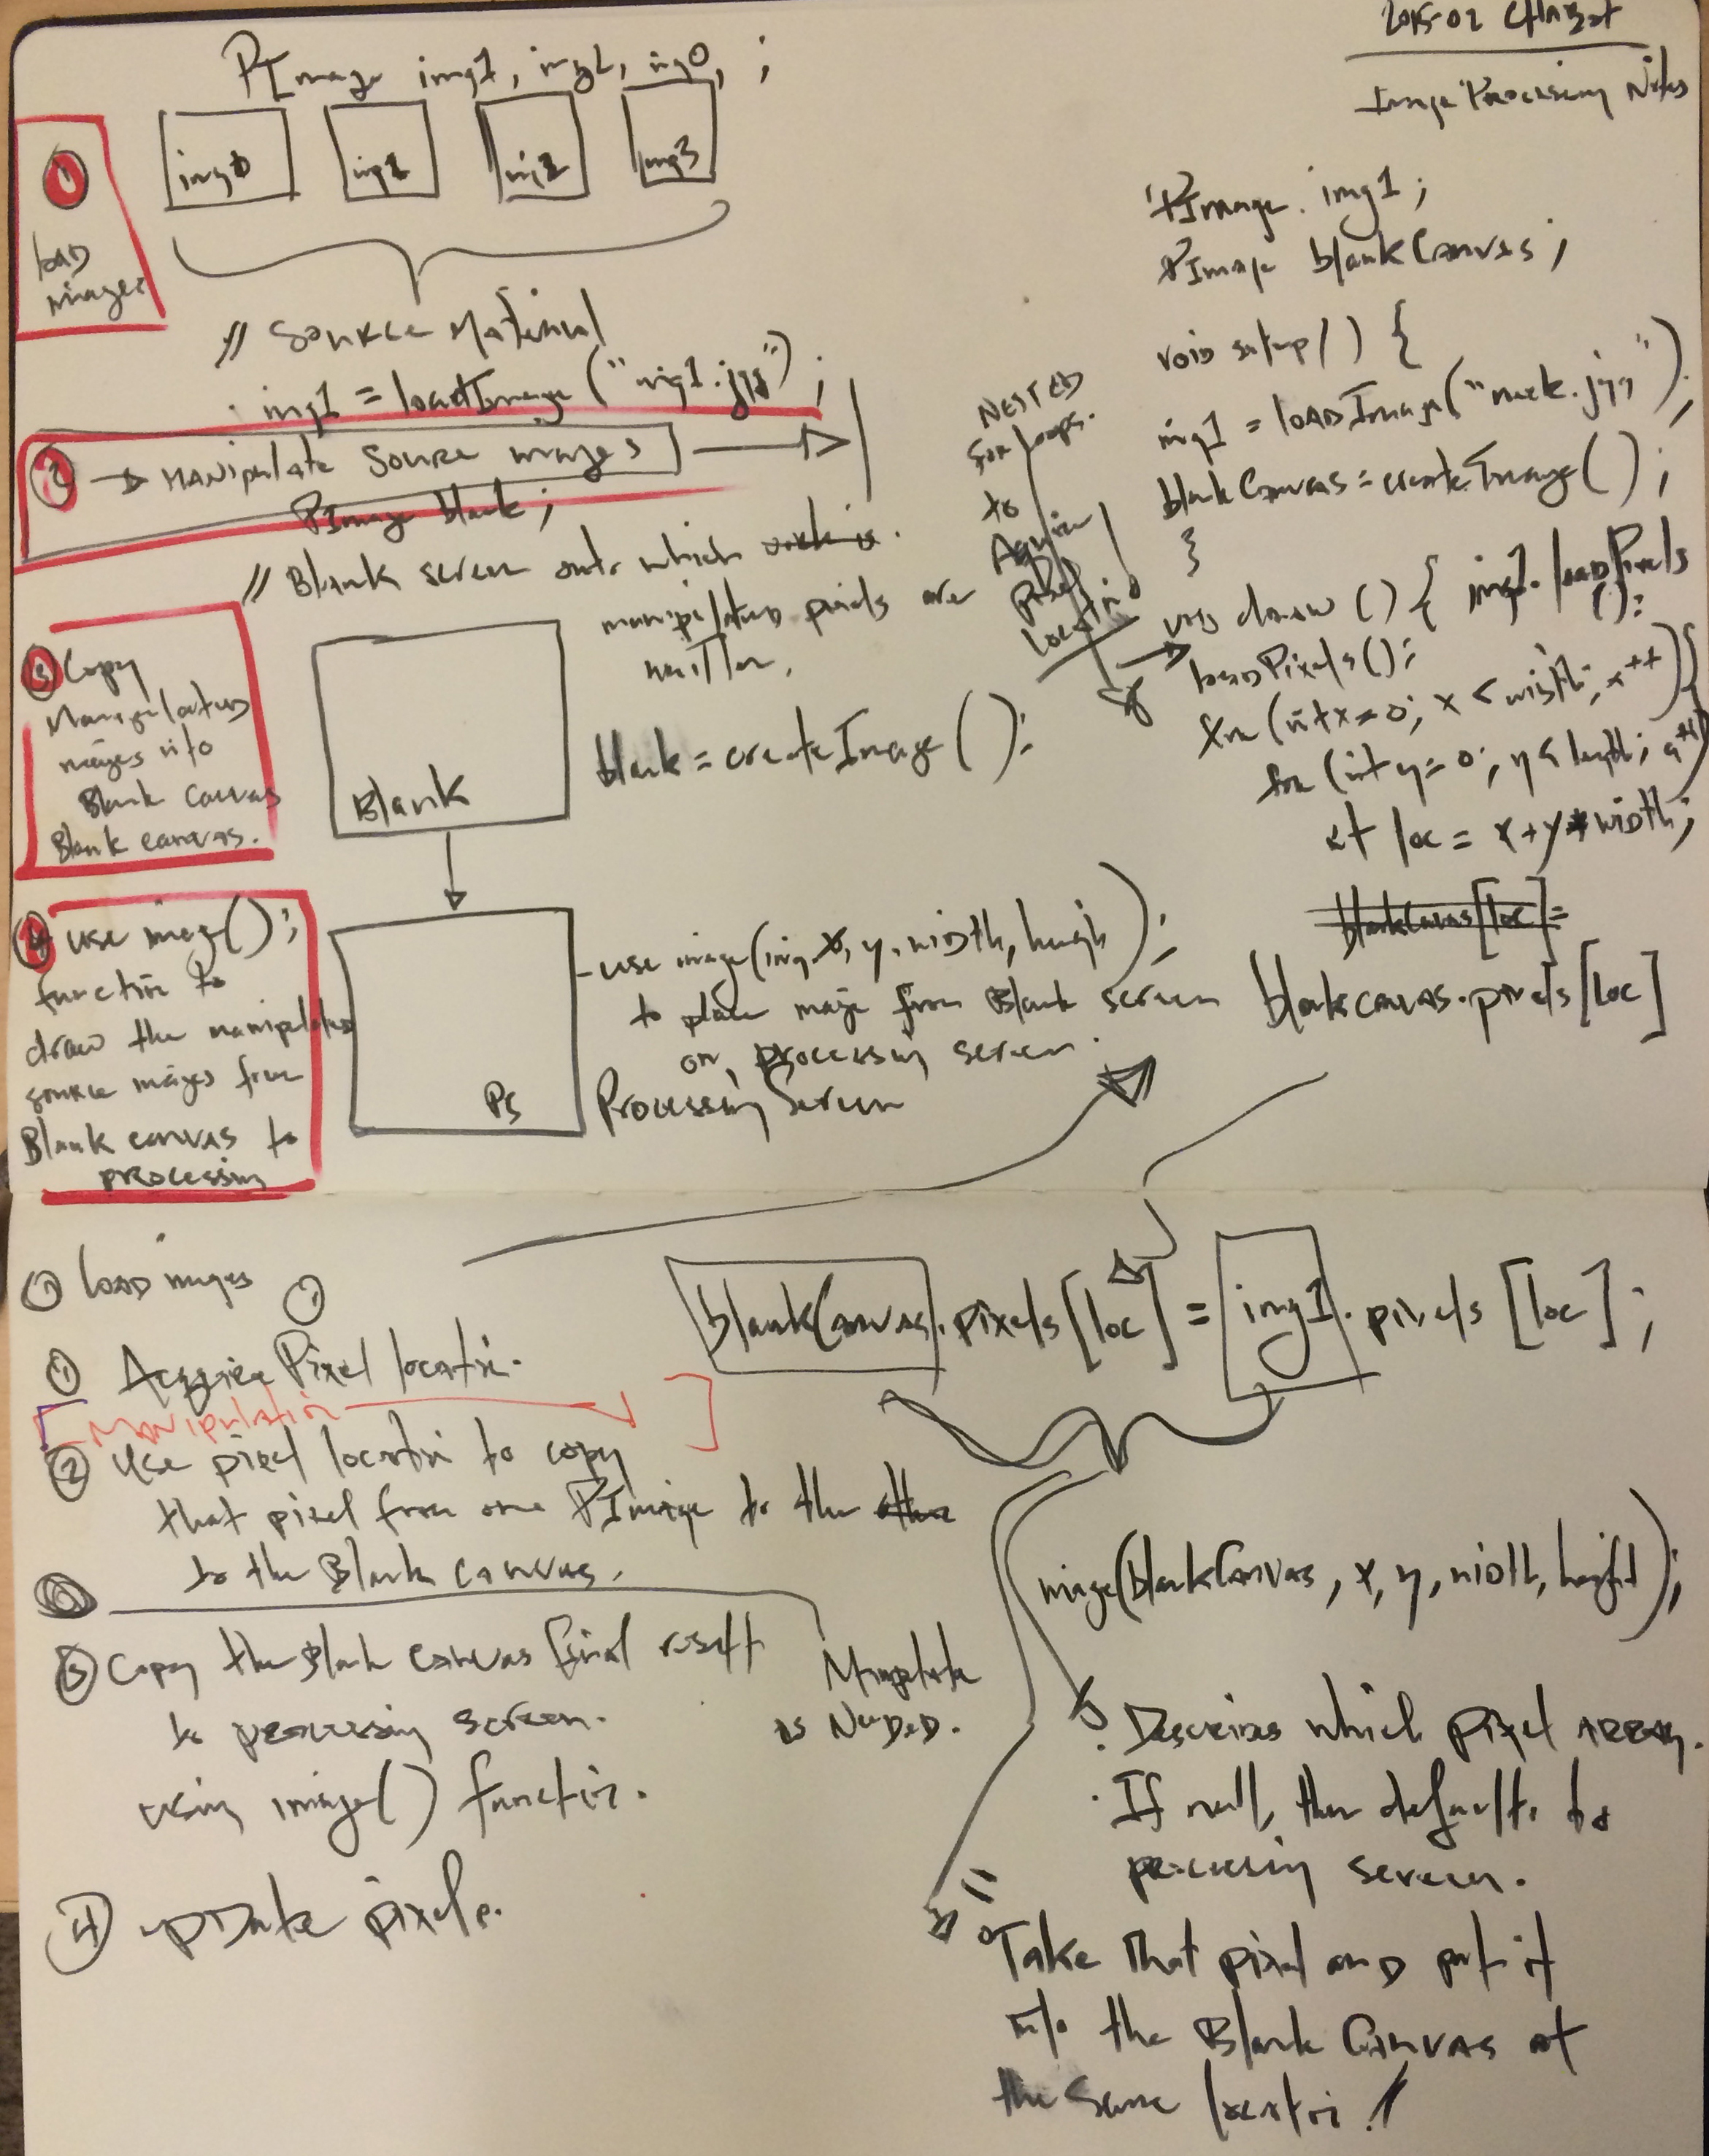 Image Processing Notes
PImage img1, img2, img0, ;
img0 img1 img2 img3
1
load
images
// Source Material
img1 = loadImage("img1.jpg");
2 → Manipulate Source images
PImage blank;
// Blank screen onto which
manipulated pixels are
written.
3 Copy
Manipulated
images into
Blank Canvas
Blank canvas.
Blank
blank = createImage();
4 use image();
function to
draw the manipulated
source images from
Blank canvas to
processing
PS
- use image(img, x, y, width, heigh);
to place image from Blank screen
on processing screen.
Processing Screen
Nested
for loops.
to
Aquire
pixel
location
PImage img1;
PImage blankCanvas;
void setup() {
img1 = loadImage(" .jpg");
blankCanvas = createImage();
}
void draw() { img1.loadPixels
();
loadPixels();
for (int x = 0; x < width; x++) {
for (int y = 0; y < length; y++)
int loc = x + y * width;
blankCanvas[loc] =
blankcanvas.pixels[loc]
1 load images
1
1 Acquire Pixel location.
[Manipulation]
2 Use pixel location to copy
that pixel from one PImage to the other
to the Blank Canvas.
3 Copy the Blank canvas final result
to processing screen.
using image() function.
Manipulate
as Needed.
4 update pixels.
blankCanvas.pixels[loc] = img1.pixels[loc];
image(blankCanvas, x, y, width, height);
. Describes which pixel array.
. If null, then defaults to
processing screen.
Take that pixel and put it
into the Blank Canvas at
the same location!